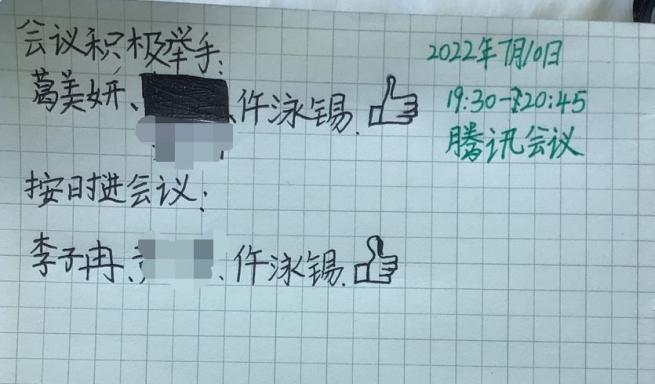 会议积极举手:
葛美妍、仵泳锡.
按时进会议:
李子冉、仵泳锡.
2022年7月10日
19:30-20:45
腾讯会议